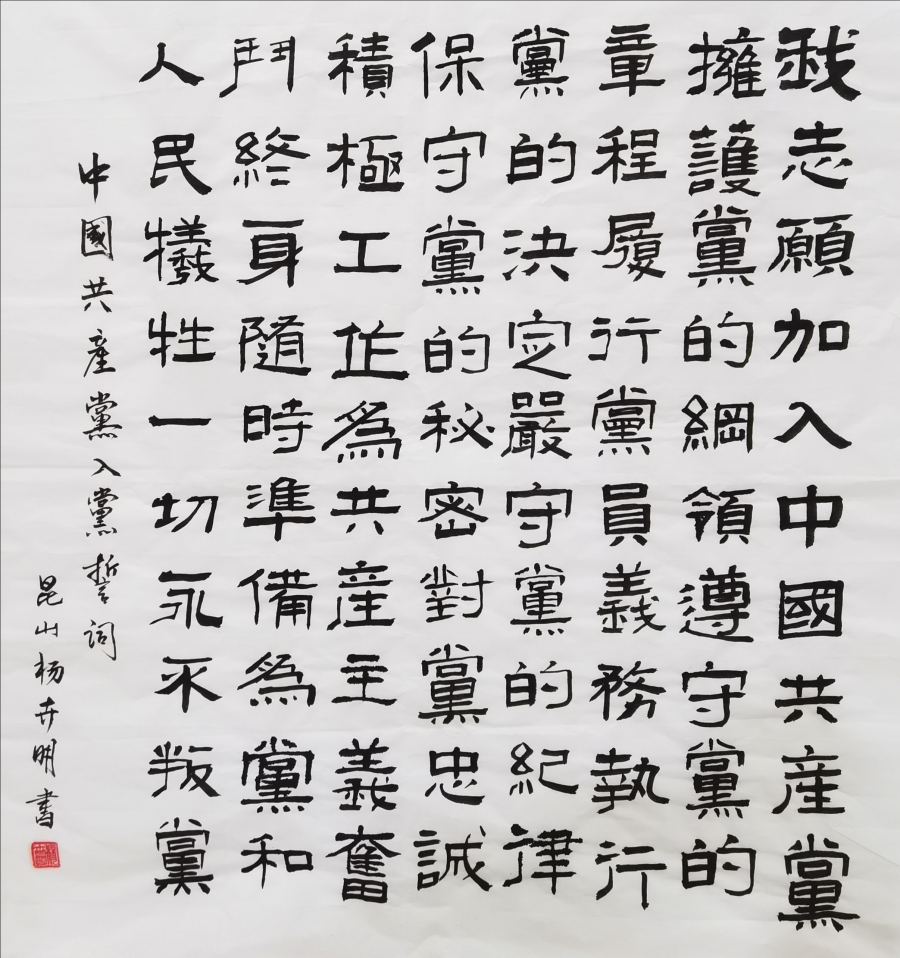 我志願加入中國共産黨
擁護黨的綱領遵守黨的
章程履行黨員義務執行
黨的決定嚴守黨的紀律
保守黨的秘密對黨忠誠
積極工作為共産主義奮
鬥終身隨時準備為黨和
人民犧牲一切永不叛黨
中國共産黨入黨誓詞
昆山杨卉明書